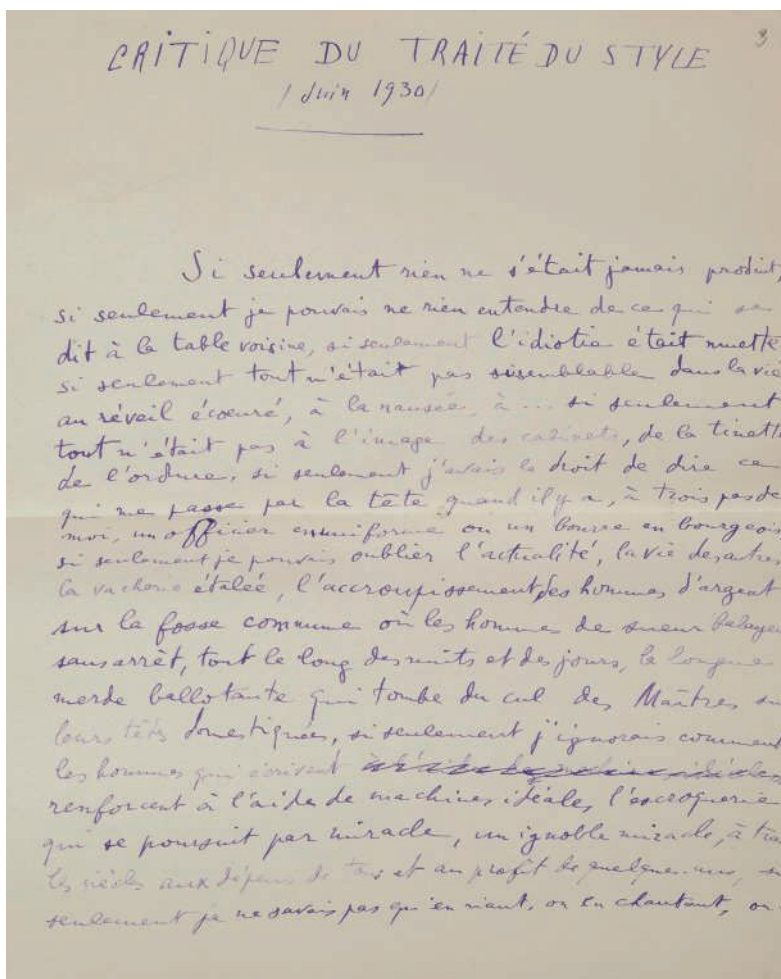 3
CRITIQUE DU TRAITÉ DU STYLE
/ Juin 1930 /
Si seulement rien ne s'était jamais produit,
si seulement je pouvais ne rien entendre de ce qui se
dit à la table voisine, si seulement l'idiotie était muette
si seulement tout n'était pas semblable dans la vie
au réveil écœuré, à la nausée, à ... si seulement
tout n'était pas à l'image des cabinets, de la tinette
de l'ordure, si seulement j'avais le droit de dire ce
qui me passe par la tête quand il y a, à trois pas de
moi, un officier en uniforme ou un bourre en bourgeois
si seulement je pouvais oublier l'actualité, la vie des autres
la vacherie étalée, l'accroupissement des hommes d'argent
sur la fosse commune où les hommes de sueur balayen
sans arrêt, tout le long des nuits et des jours, la longue
merde ballotante qui tombe du cul des Maîtres su
leurs têtes domestiquées, si seulement j'ignorais comment
les hommes qui écrivent
renforcent à l'aide de machines idéales, l'escroquerie
qui se poursuit par miracle, un ignoble miracle, à tra
les siècles aux dépens de tous et au profit de quelques-uns, si
seulement je ne savais pas qu'en riant, ou en chantant, ou